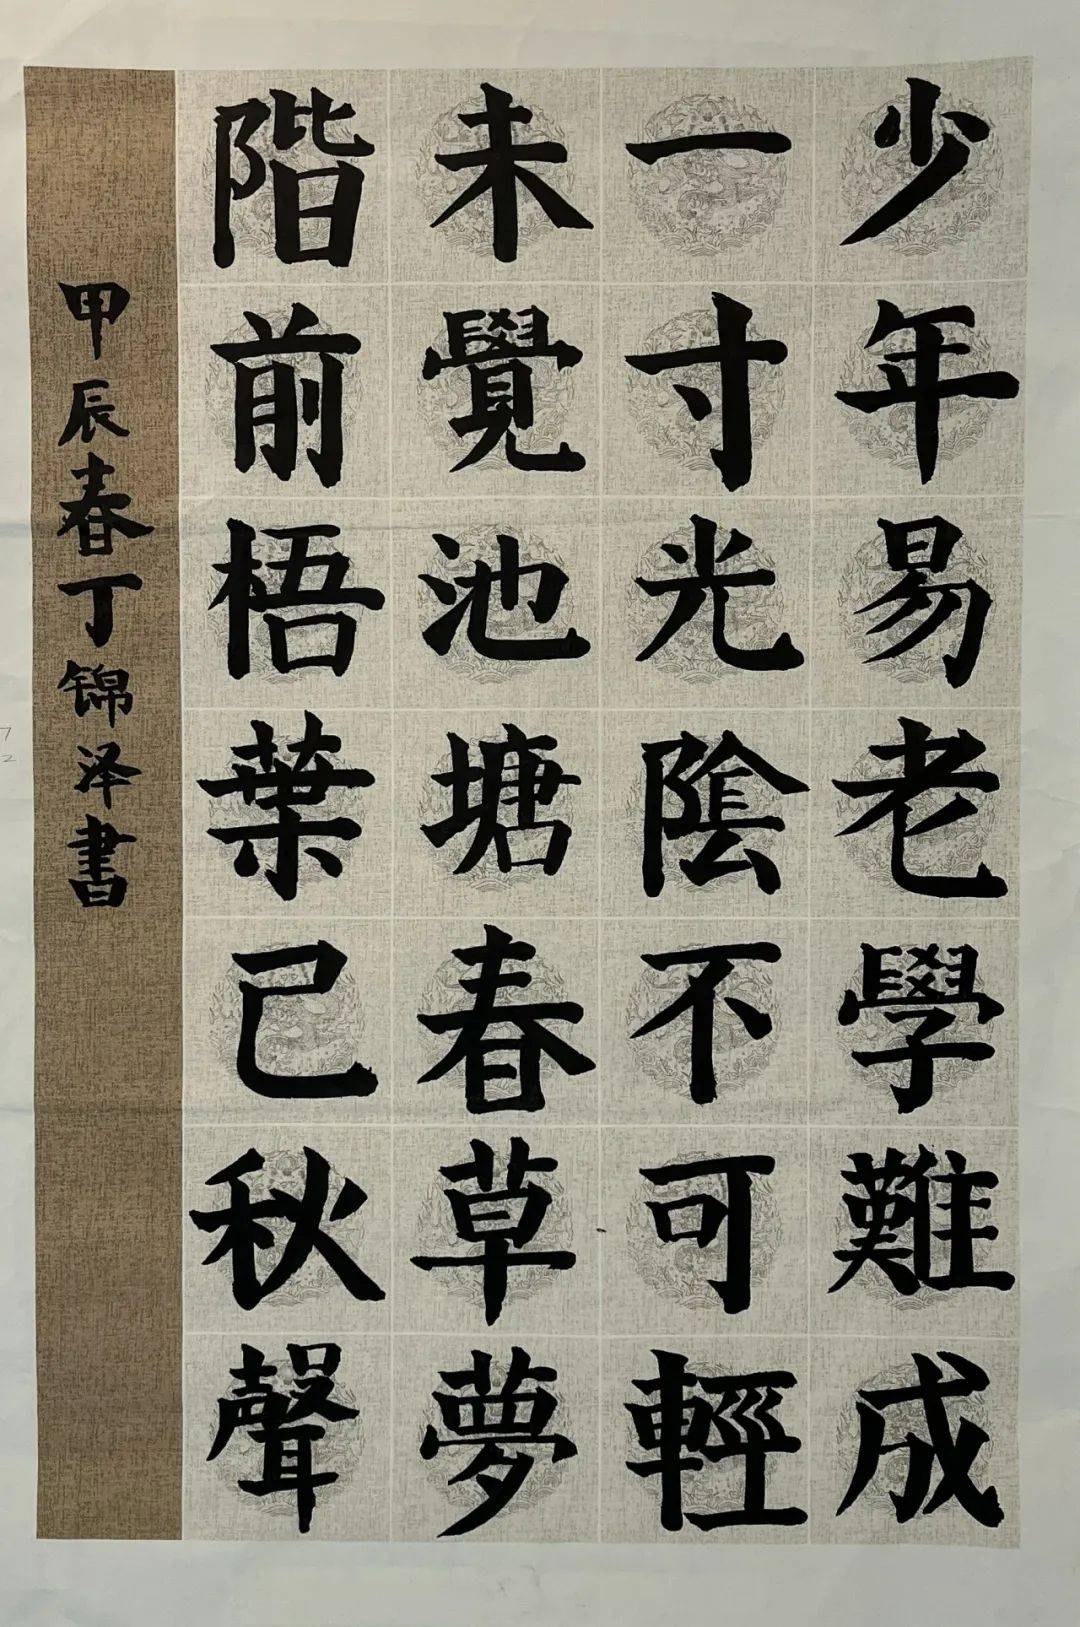 少年易老學難成
一寸光陰不可輕
未覺池塘春草夢
階前梧葉已秋聲
甲辰春丁锦泽書